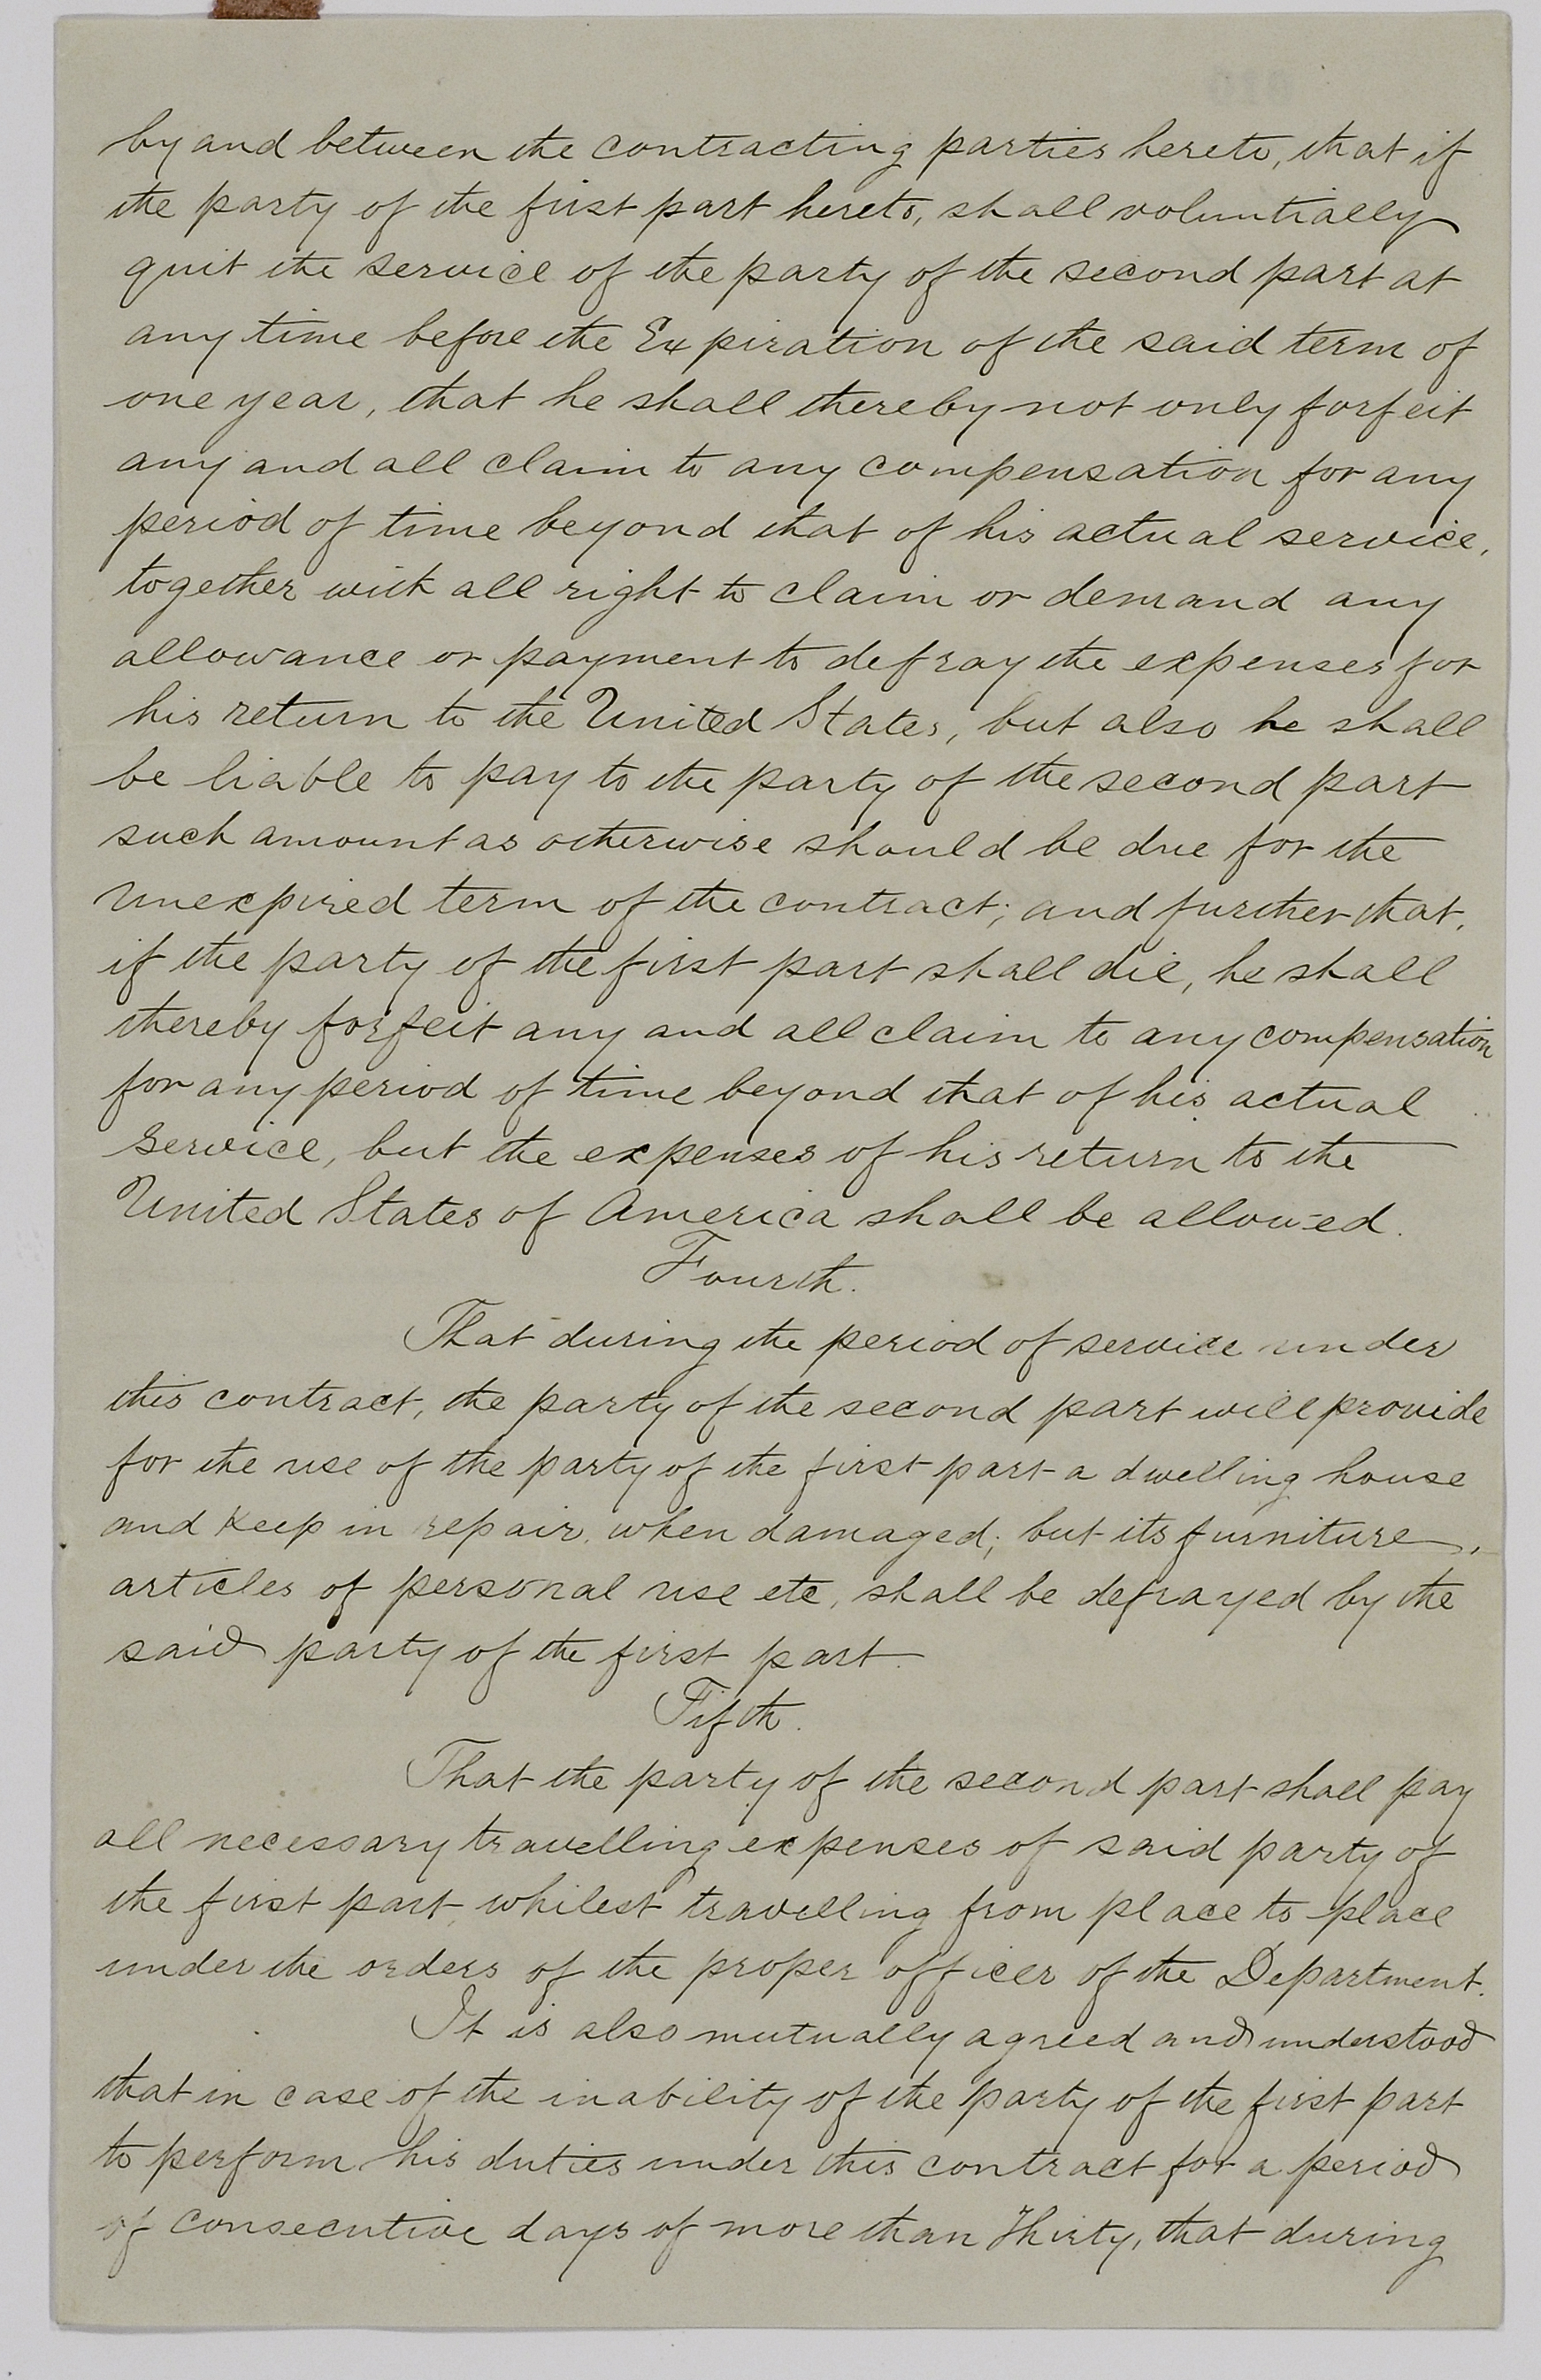 by and between the contracting parties hereto, that if
the party of the first part hereto, shall voluntially
quit the service of the party of the second part at
any time before the Expiration of the said term of
one year, that he shall thereby not only forfeit
any and all claim to any compensation for any
period of time beyond that of his actual service,
together with all right to claim or demand any
allowance or payment to defray the expenses for
his return to the United States, but also he shall
be liable to pay to the party of the second part
such amount as otherwise should be due for the
unexpired term of the contract; and further that,
if the party of the first part shall die, he shall
thereby forfeit any and all claim to any compensation
for any period of time beyond that of his actual
service, but the expenses of his return to the
United States of America shall be allowed.
Fourth.
That during the period of service under
this contract, the party of the second part will provide
for the use of the party of the first part a dwelling house
and keep in repair, when damaged; but its furniture,
articles of personal use etc, shall be defrayed by the
said party of the first part.
Fifth.
That the party of the second part shall pay
all necessary travelling expenses of said party of
the first part whilest travelling from place to place
under the orders of the proper officer of the Department.
It is also mutually agreed and understood
that in case of the inability of the party of the first part
to perform his duties under this contract for a period
of consecutive days of more than Thirty, that during